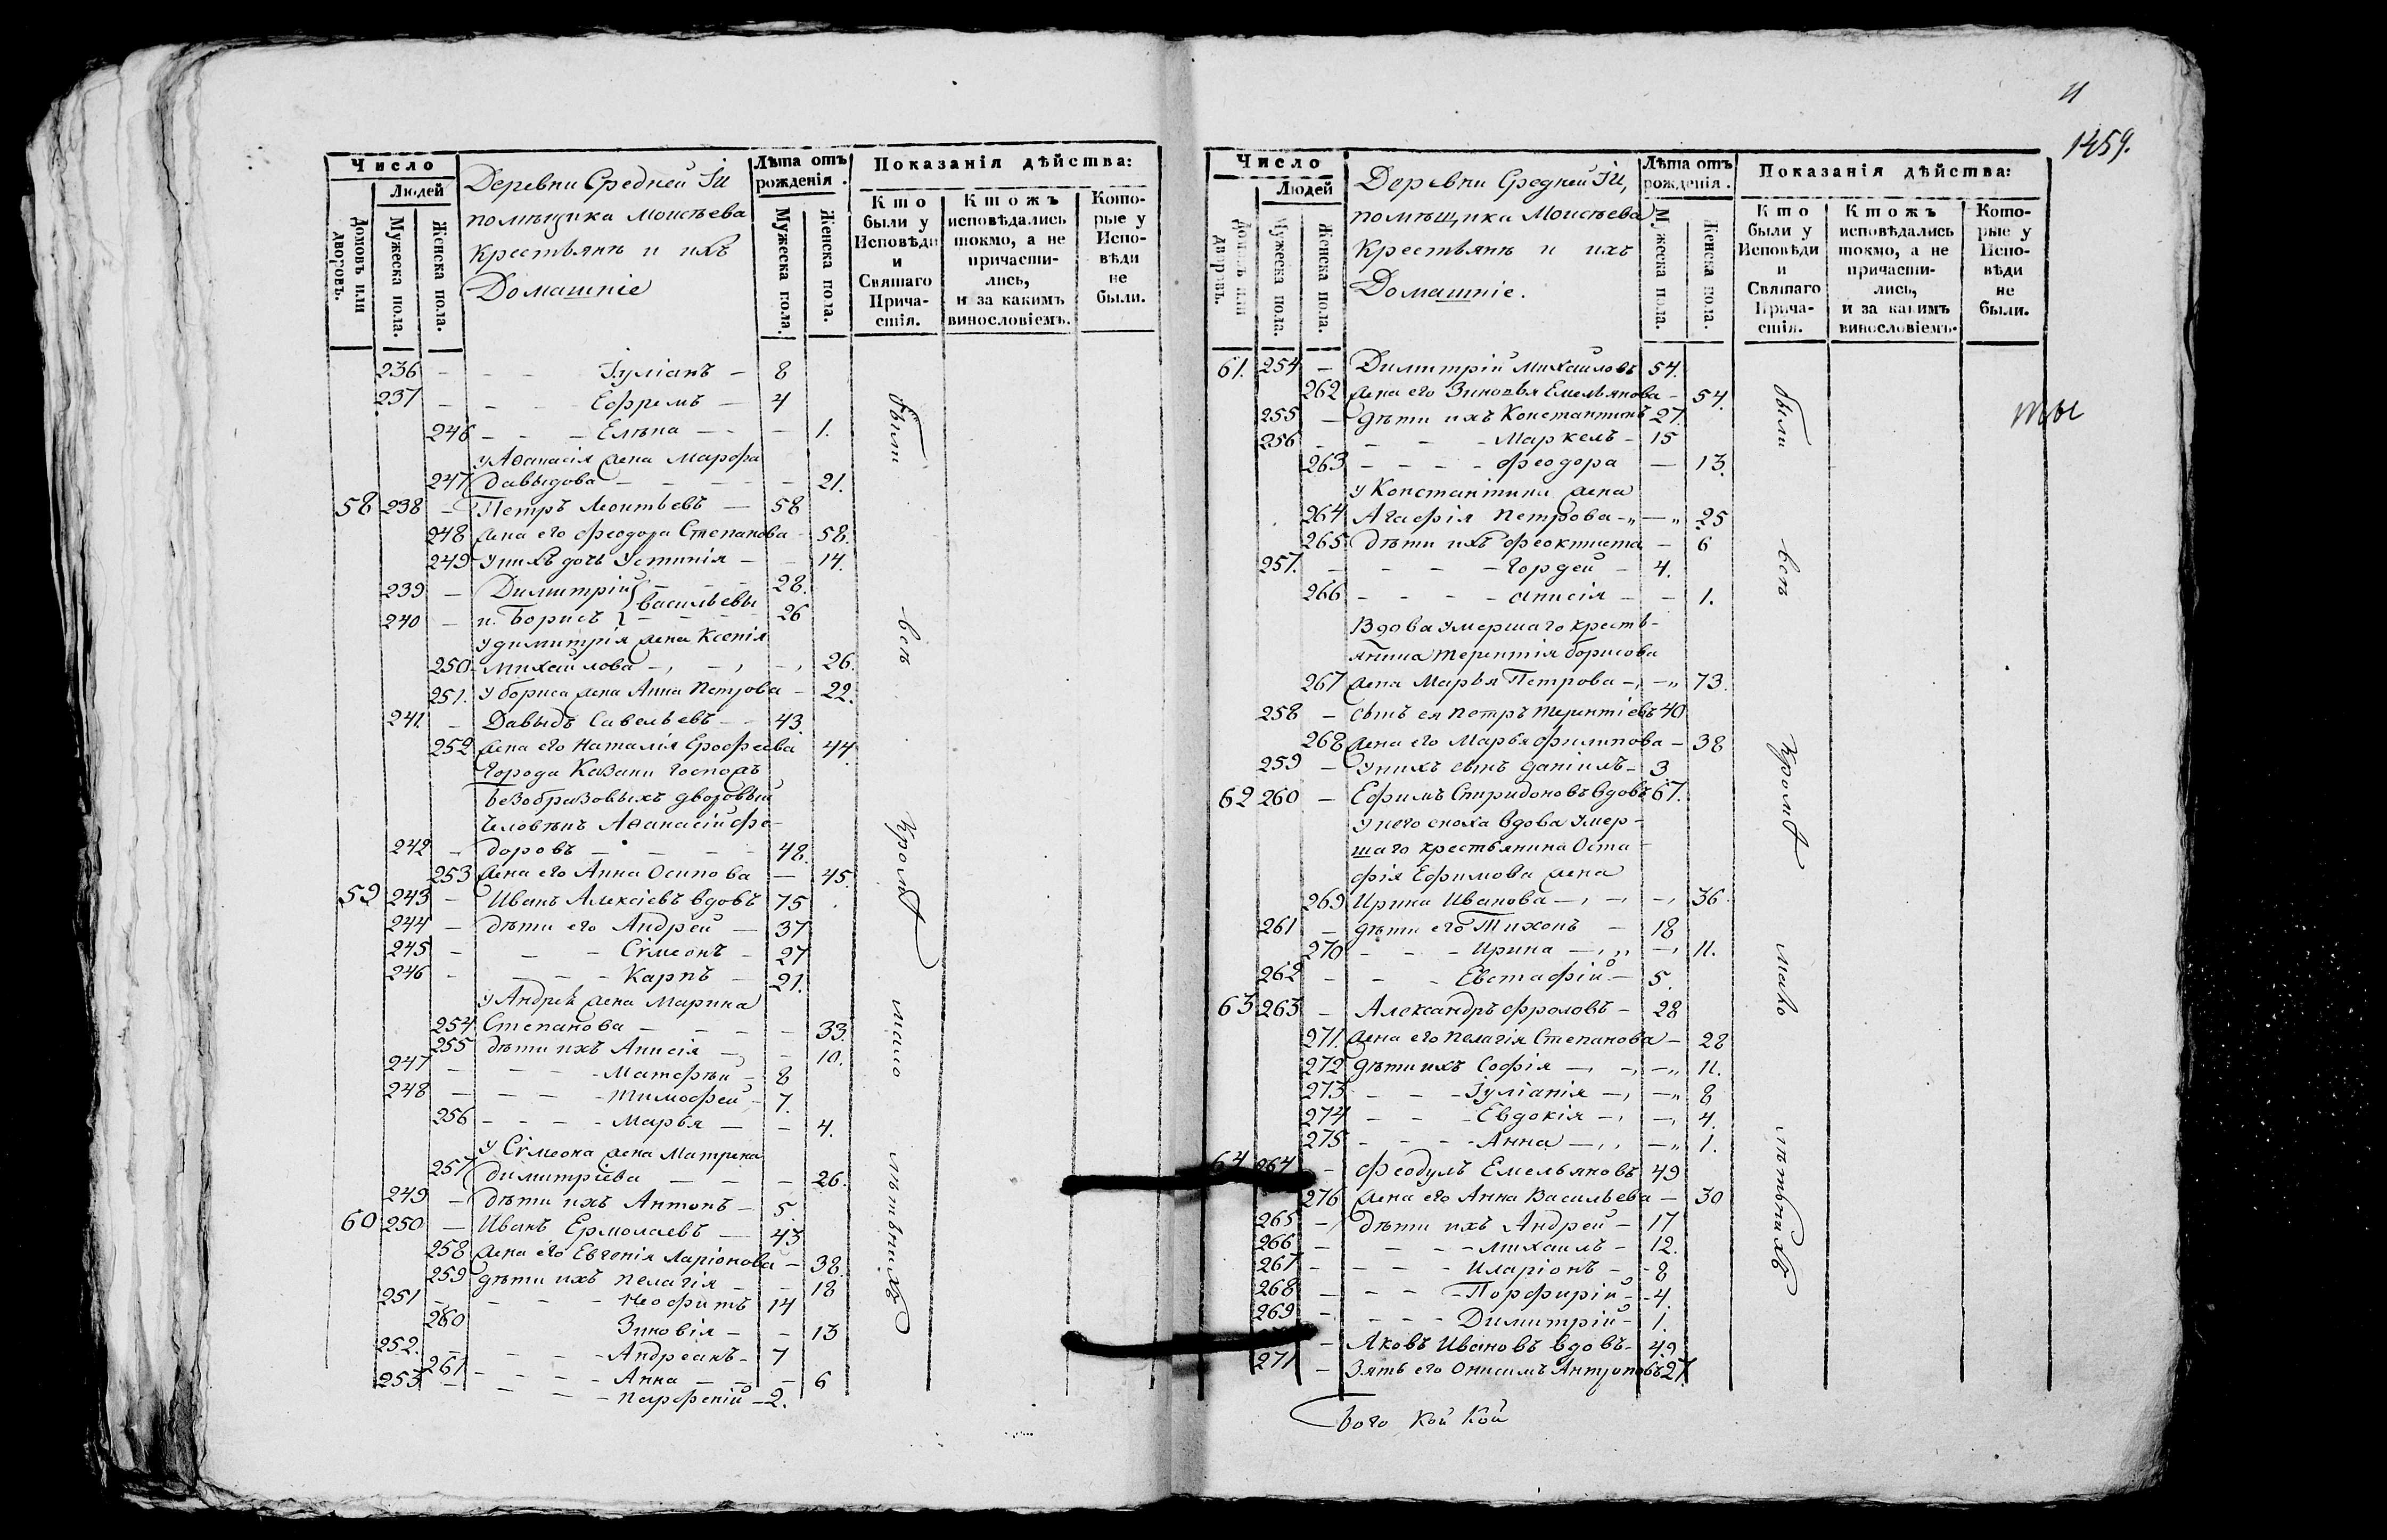 Число
Людей
Домовъ или дворовъ.
Мужеска пола.
Женска пола.
Деревни Средней Iи
помѣщика Моисѣева
крестьянъ и ихъ
Домашніе
Лѣта отъ рожденія.
Мужеска пола.
Женска пола.
Показанія дѣйства:
Кто были у Исповѣди и Святаго Прича-стія.
Ктожъ исповѣдались токмо, а не причасти-лись, и за какимъ винословіемъ.
Кото-рые у Испо-вѣди не были.
236 - - - Iуліанъ - 8
237 - - - Ефремъ - 4
246 - - - Елѣна - - - 1.
у Аѳанасія жена Марфа
247 Давыдова - - - - 21.
58 238 - Петръ Леонтьевъ - 58
248 жена его Феодора Степанова - 58.
249 у нихъ дочь Устинія - - 14.
239 - Димитрій } Васильевы 28.
240 - и Борисъ } - - 26
у Димитрія жена Ксенія
250 - Михайлова - - - 26.
251. у Бориса жена Анна Петрова - 22.
241. - Давыдъ Савельевъ - - 43.
252 жена его Наталія Ерофеева 44.
Города Казани Господъ
Безобразовыхъ дворовый
Человѣкъ Аѳанасій Фе-
242 - доровъ - - - 48.
253 жена его Анна Осипова - 45.
59 243 - Иванъ Алексіевъ вдовъ 75
244 - дѣти его Андрей - 37
245 - - - Сѵмеонъ - 27
246 - - - Карпъ - 21.
у Андрея жена Марина
254 Степанова - - - - 33.
255 дѣти ихъ Анисія - - 10.
247 - - - Матфѣй - 8
248 - - - Тимофей - 7.
256 - - - - Марья - - 4.
у Сѵмеона жена Матрена
257 Димитріева - - - 26.
249 - дѣти ихъ Антонъ - 5
60 250 - Иванъ Ермолаевъ - 43
258 жена его Евгенія Ларіонова - 38.
259 дѣти ихъ Пелагія - - 18
251 - - - Неофитъ 14
260 Зиновія - - 13
252. - - - - Андреанъ - 7
261 - - - - Анна - - - 6
253 - - - - Парфеній - 2.
были
всѣ
Кромѣ
мало
лѣтнихъ
11
1459.
Число
Людей
Домовъ или дворовъ.
Мужеска пола.
Женска пола.
Деревни Средней Iи,
помѣщика Моисѣева
Крестьянъ и ихъ
Домашніе.
Лѣта отъ рожденія.
Мужеска пола.
Женска пола.
Показанія дѣйства:
Кто были у Исповѣди и Святаго Прича-стія.
Ктожъ исповѣдались токмо, а не причасти-лись, и за какимъ винословіемъ.
Кото-рые у Испо-вѣди не были.
61. 254 - Димитрій Михайловъ 54.
262 жена его Зиновья Емельянова - 54.
255 - дѣти ихъ Константинъ 27.
256 - - - - Маркелъ - 15
263 - - - - Феодора - 13.
у Константина жена
264 Агафія Петрова - - 25
265 дѣти ихъ Феоктиста - 6
257. - - - - Гордей - 4.
266 - - - - Анисія - - 1.
Вдова умершаго кресть-
янина Терентія Борисова
267 жена Марья Петрова - - 73.
258 - сынъ ея Петръ Терентіевъ 40
268 жена его Марья Филипова - 38
259 - у нихъ сынъ Даніилъ - 3
62 260 - Ефимъ Спиридоновъ вдовъ 67.
у него сноха вдова умер-
шаго крестьянина Оста-
фія Ефимова жена
269 Ирина Иванова - - - 36
261 - дѣти его Тихонъ - 18
270 - - - Ирина - - - 11.
262 - - - Евстафій - 5.
63 263 - Александръ Фроловъ - 28
271. жена его Пелагія Степанова - 28
272 дѣти ихъ Софія - - - 11.
273 - - - Iуліанія - - 8
274 - - - Евдокія - - 4.
275 - - - Анна - - - 1.
64 264 - Феодулъ Емельяновъ 49
276 жена его Анна Васильева - 30
265 - дѣти ихъ Андрей - 17
266 - - - Михаилъ - 12.
267 - - - - Иларіонъ - 8
268 - - - Порфирій - 4.
269 - - - - Димитрій - 1.
- Яковъ Ивановъ вдовъ - 49
271 - Зять его Онисимъ Антоновъ 27.
были
всѣ
Кромѣ
мало
лѣтнихъ
ты